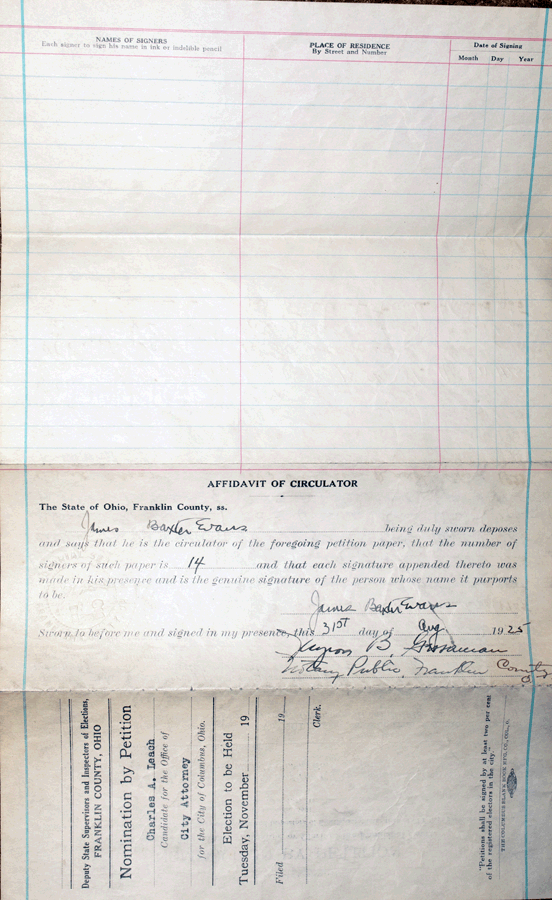 NAMES OF SIGNERS
Each signer to sign his name in ink or indelible pencil
PLACE OF RESIDENCE
By Street and Number
Date of Signing
Month Day Year
AFFIDAVIT OF CIRCULATOR
The State of Ohio, Franklin County, ss.
James Baxter Evans being duly sworn deposes
and says that he is the circulator of the foregoing petition paper, that the number of
signers of such paper is 14 and that each signature appended thereto was
made in his presence and is the genuine signature of the person whose name it purports
to be.
James Baxter Evans
Sworn to before me and signed in my presence, this 31st day of Aug 1925
B. Grossman
Notary Public, Franklin County
Deputy State Supervisors and Inspectors of Elections,
FRANKLIN COUNTY, OHIO
Nomination by Petition
Charles A. Leach
Candidate for the Office of
City Attorney
for the City of Columbus, Ohio.
Election to be Held
Tuesday, November 19
Filed 19
Clerk.
"Petitions shall be signed by at least two per cent
of the registered electors in the city."
THE COLUMBUS BLANK BOOK MFG. CO., COL., O.